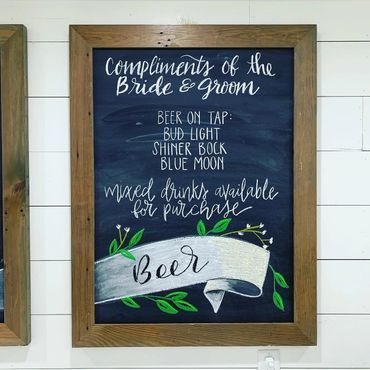 Compliments of the
Bride & Groom
BEER ON TAP:
BUD LIGHT
SHINER BOCK
BLUE MOON
mixed drinks available
for purchase
Beer